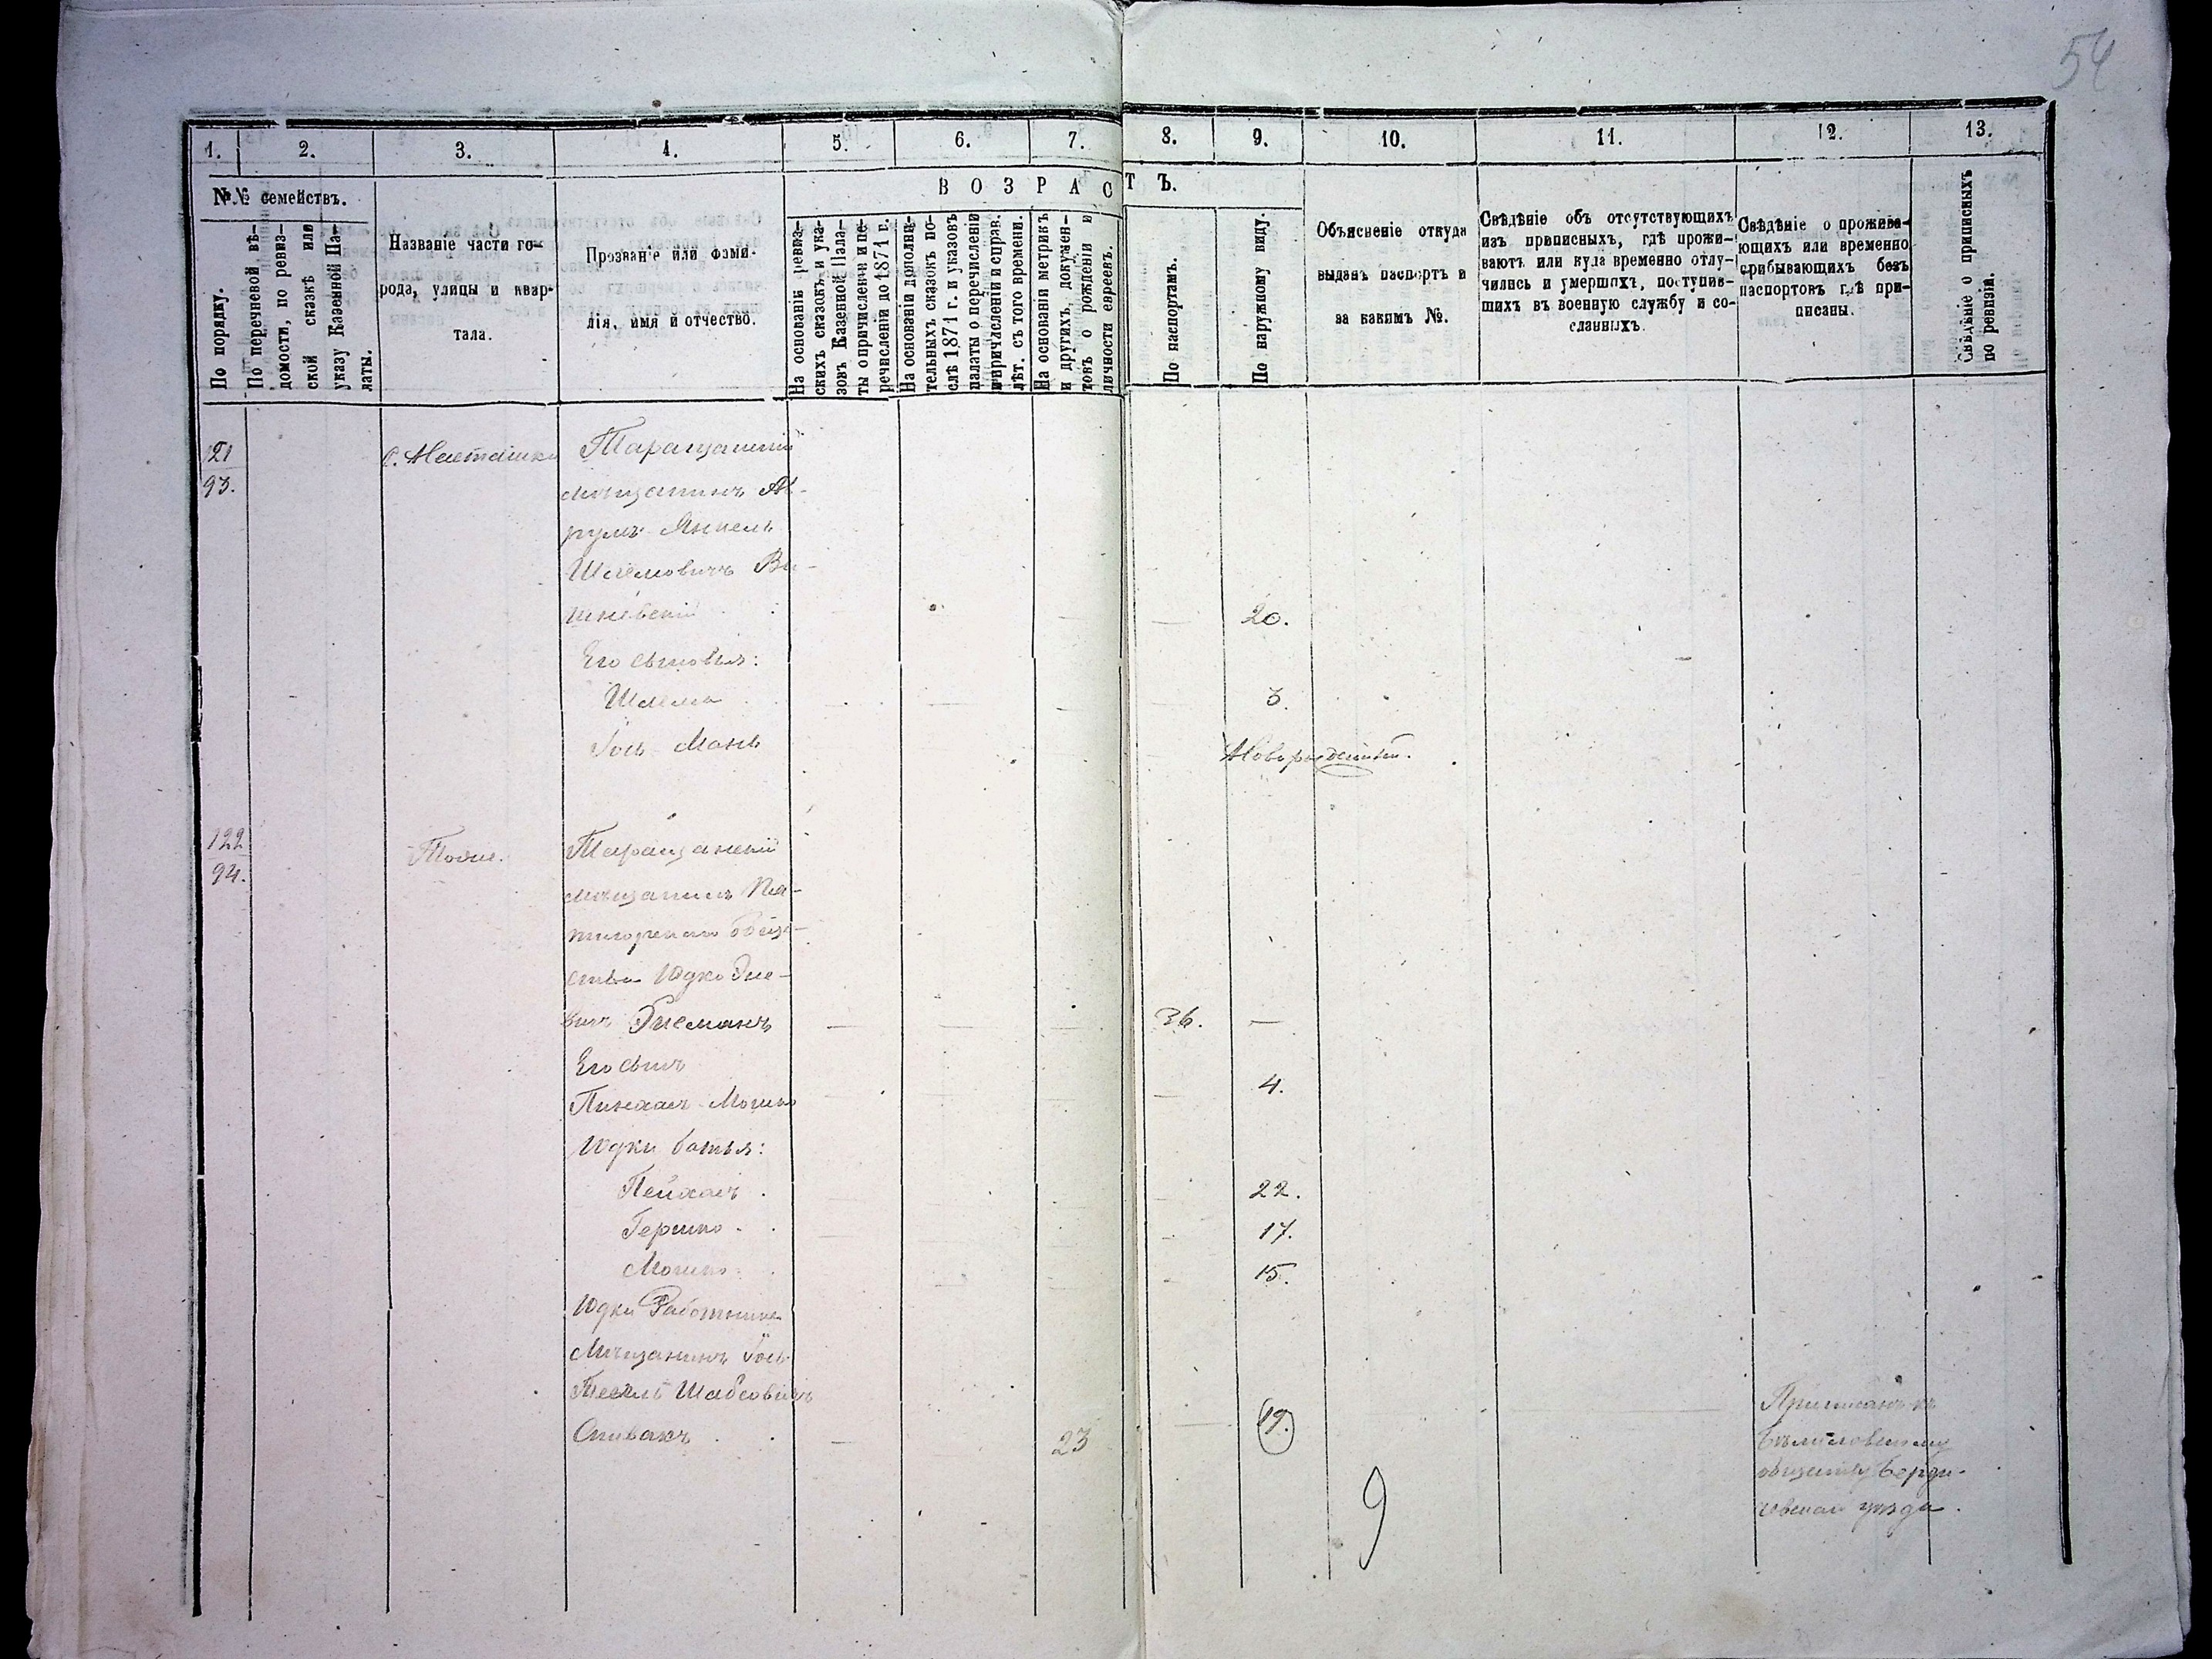 54
1. 2. 3. 4. 5. 6. 7. 8. 9. 10. 11. 12. 13.
№№ семействъ.
По порядку.
По перечневой вѣ-
домости, по ревиз-
ской сказкѣ или
указу Казенной Па-
латы.
Названіе части го-
рода, улицы и квар-
тала.
Прозваніе или фами-
лія, имя и отчество.
ВОЗРАСТЪ.
На основаніи ревиз-
скихъ сказокъ и ука-
зовъ Казенной Пала-
ты о причисленіи и пе-
речисленіи до 1871 г.
На основаніи дополни-
тельныхъ сказокъ по-
слѣ 1871 г. и указовъ
палаты о перечисленіи
и причисленіи и справ.
лѣт. съ того времени.
На основаніи метрикъ
и другихъ докумен-
товъ о рожденіи и
личности евреевъ.
По паспортамъ.
По наружному виду.
Объясненіе откуда
выданъ паспортъ и
за какимъ №.
Свѣдѣніе объ отсутствующихъ
изъ приписныхъ, гдѣ прожи-
ваютъ или куда временно отлу-
чились и умершихъ, поступив-
шихъ въ военную службу и со-
сланныхъ.
Свѣдѣніе о прожива-
ющихъ или временно
прибывающихъ безъ
паспортовъ гдѣ при-
писаны.
Свѣдѣніе о приписныхъ
по ревизіи.
121
93.
с. Насташка
Таращанскій
мѣщанинъ
Янкель
Шлемовичъ Ви-
шневскій 20.
Его сыновья:
Шлема 3.
Іось Мань Новорожденный.
122
94.
Тоже.
Таращанскій
мѣщанинъ Пя-
тигорскаго общe-
ства Юдко Зис-
вичъ Зисманъ — — — 36. —
Его сынъ
Пинхасъ Мошко 4.
Юдки батья:
Пейсахъ 22.
Гершко 17.
Мошко 15.
Юдки Работникъ
Мѣщанинъ Іось
Шабсовичъ
Спивакъ — 23 19.
Приписанъ къ
Бѣлиловскому
обществу Берди-
човскаго уѣзда.
9